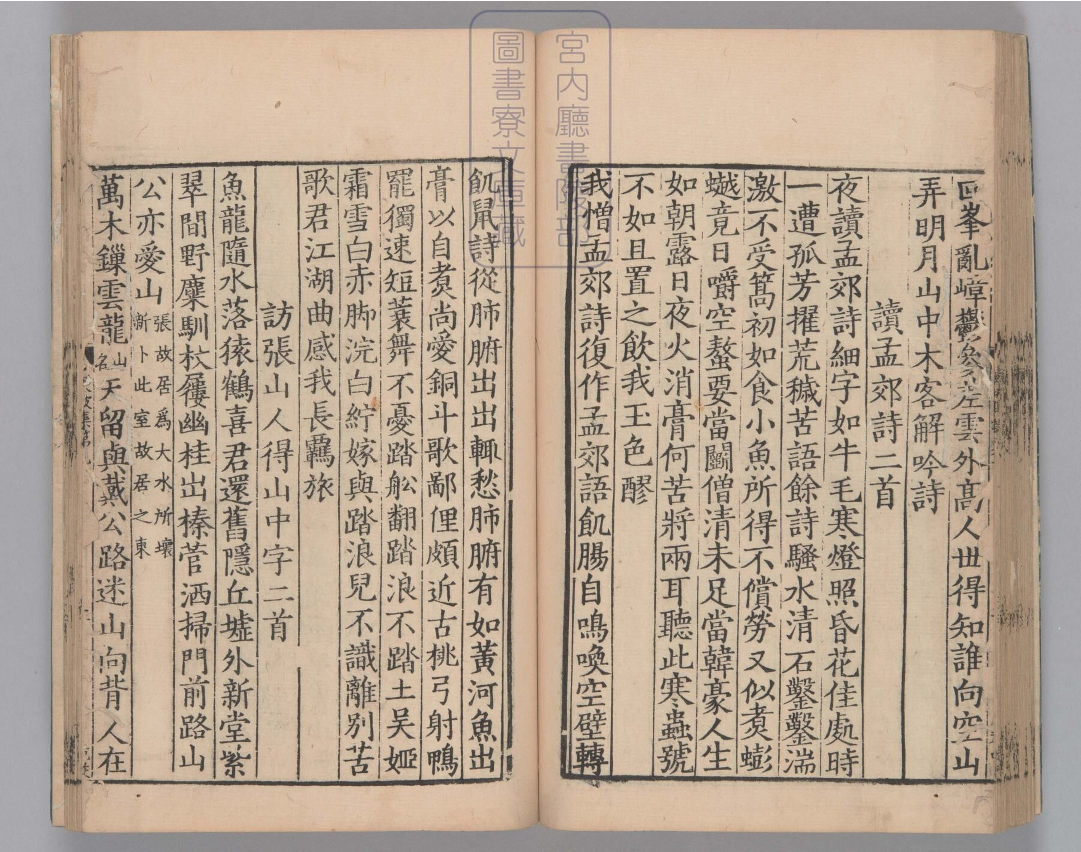 宮内廳書陵部
圖書寮文庫藏
峯亂嶂雲外高人丗得知誰向空山
弄明月山中木客解吟詩
讀孟郊詩二首
夜讀孟郊詩細字如牛毛寒燈照昏花佳處時
一遭孤芳擢荒穢苦語餘詩騷水清石鑿鑿湍
激不受篙初如食小魚所得不償勞又似煑蟛
𧒽竟日嚼空螯要當鬭僧清未足當韓豪人生
如朝露日夜火消膏何苦將兩耳聽此寒蟲號
不如且置之飲我玉色醪
我憎孟郊詩復作孟郊語飢腸自鳴喚空壁轉
飢鼠詩從肺腑出出輒愁肺腑有如黃河魚出
膏以自煑尚愛銅斗歌鄙俚頗近古桃弓射鴨
罷獨速短蓑舞不憂踏舩翻踏浪不踏土吳姬
霜雪白赤脚浣白紵嫁與踏浪兒不識離別苦
歌君江湖曲感我長羈旅
訪張山人得山中字二首
魚龍隨水落猿鶴喜君還舊隱丘墟外新堂紫
翠間野麋馴杖屨幽桂出榛菅洒掃門前路山
公亦愛山張故居爲大水所壞新卜此室故居之東
萬木鏁雲龍山名天留與戴公路迷山向背人在